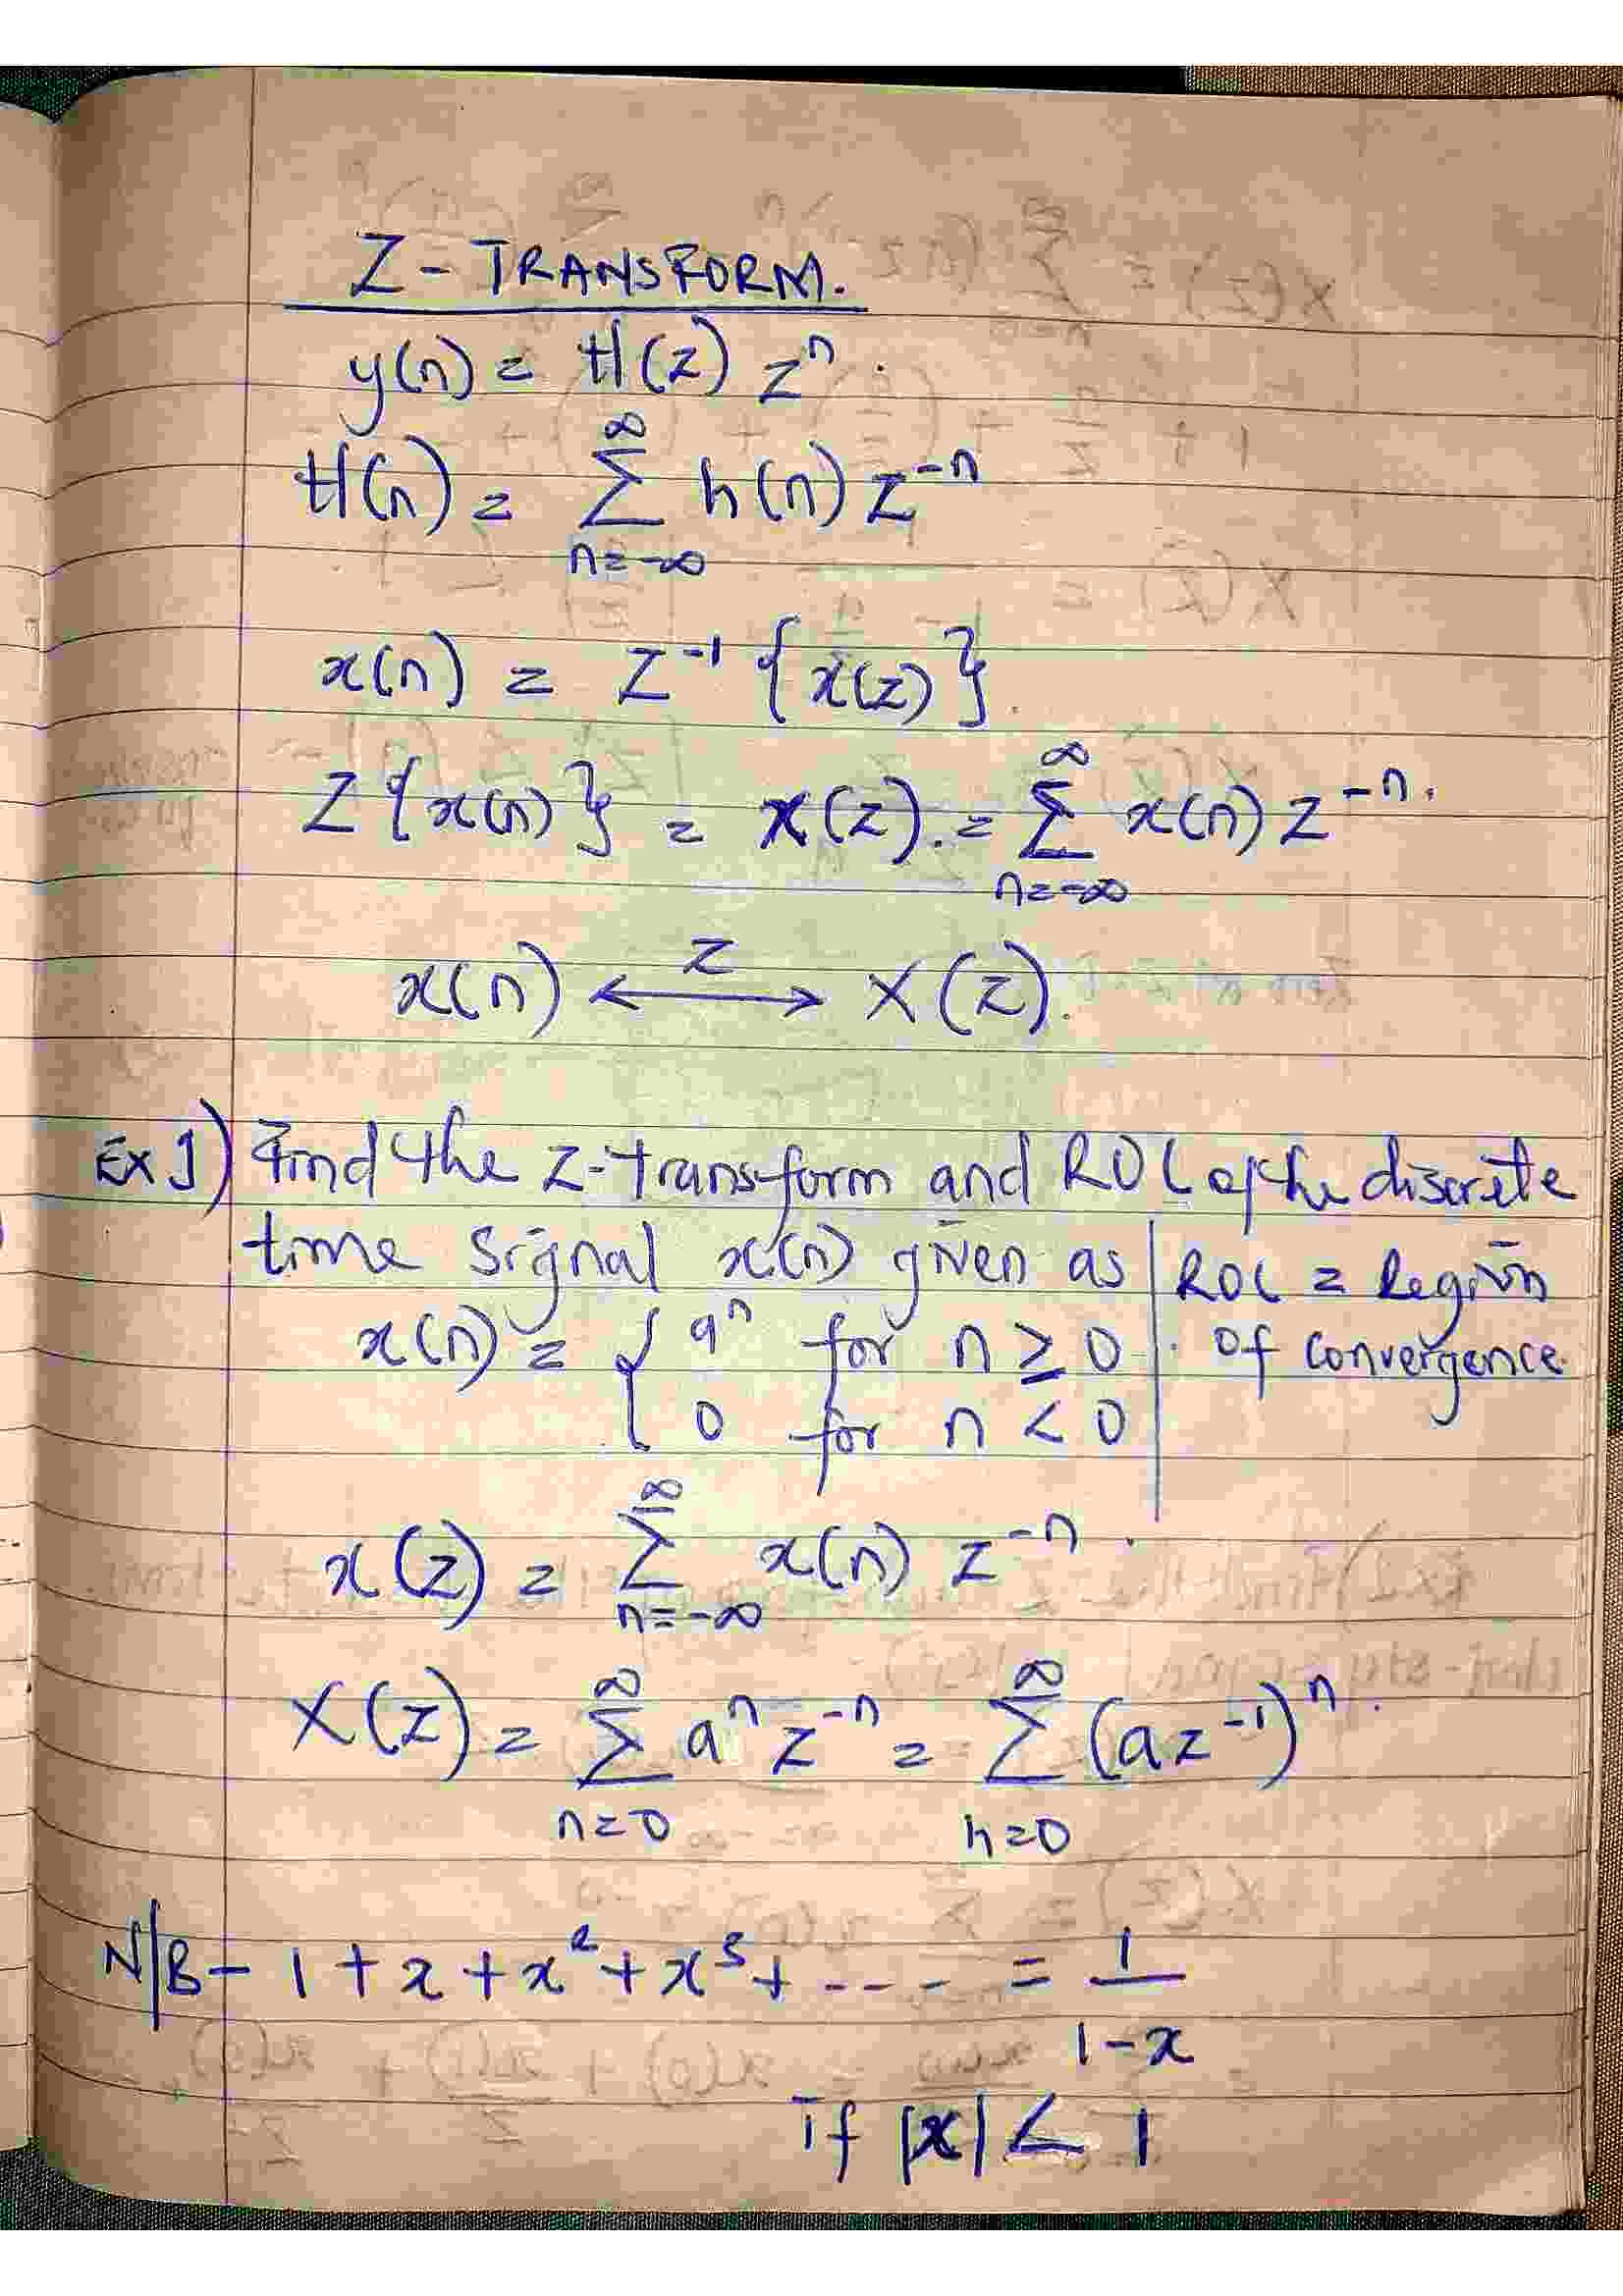 Z - TRANSFORM.
y(n) = H(z) zⁿ.
H(n) = ∞∑n=-∞ h(n) z⁻ⁿ
x(n) = Z⁻¹ {x(z)}.
Z {x(n)} = X(z). = ∞∑n=-∞ x(n) z⁻ⁿ.
x(n) ←Z→ X(z).
Ex 1) Find the Z-transform and ROC of the discrete
time signal x(n) given as | ROC = Region
x(n) = { aⁿ for n ≥ 0 | of convergence.
0 for n < 0
x(z) = ∞∑n=-∞ x(n) z⁻ⁿ.
X(z) = ∞∑n=0 aⁿ z⁻ⁿ = ∞∑n=0 (az⁻¹)ⁿ.
N/B - 1 + x + x² + x³ + ---- = 1/(1-x)
if |x| < 1